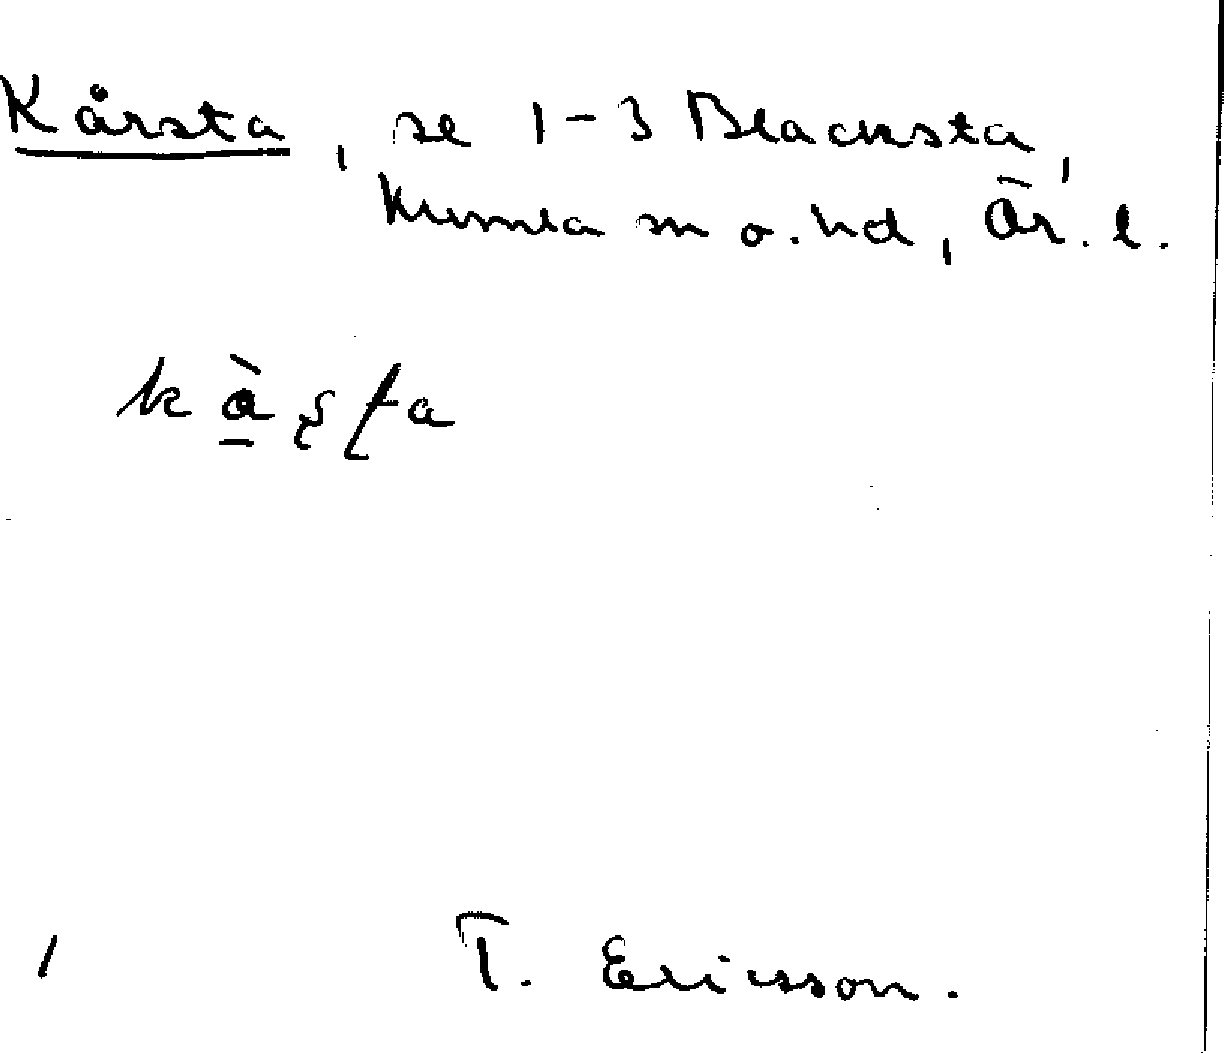 Kårsta, se 1-3 Blacksta,
Kumla sn o. hd, Ör. l.
T. Ericsson.